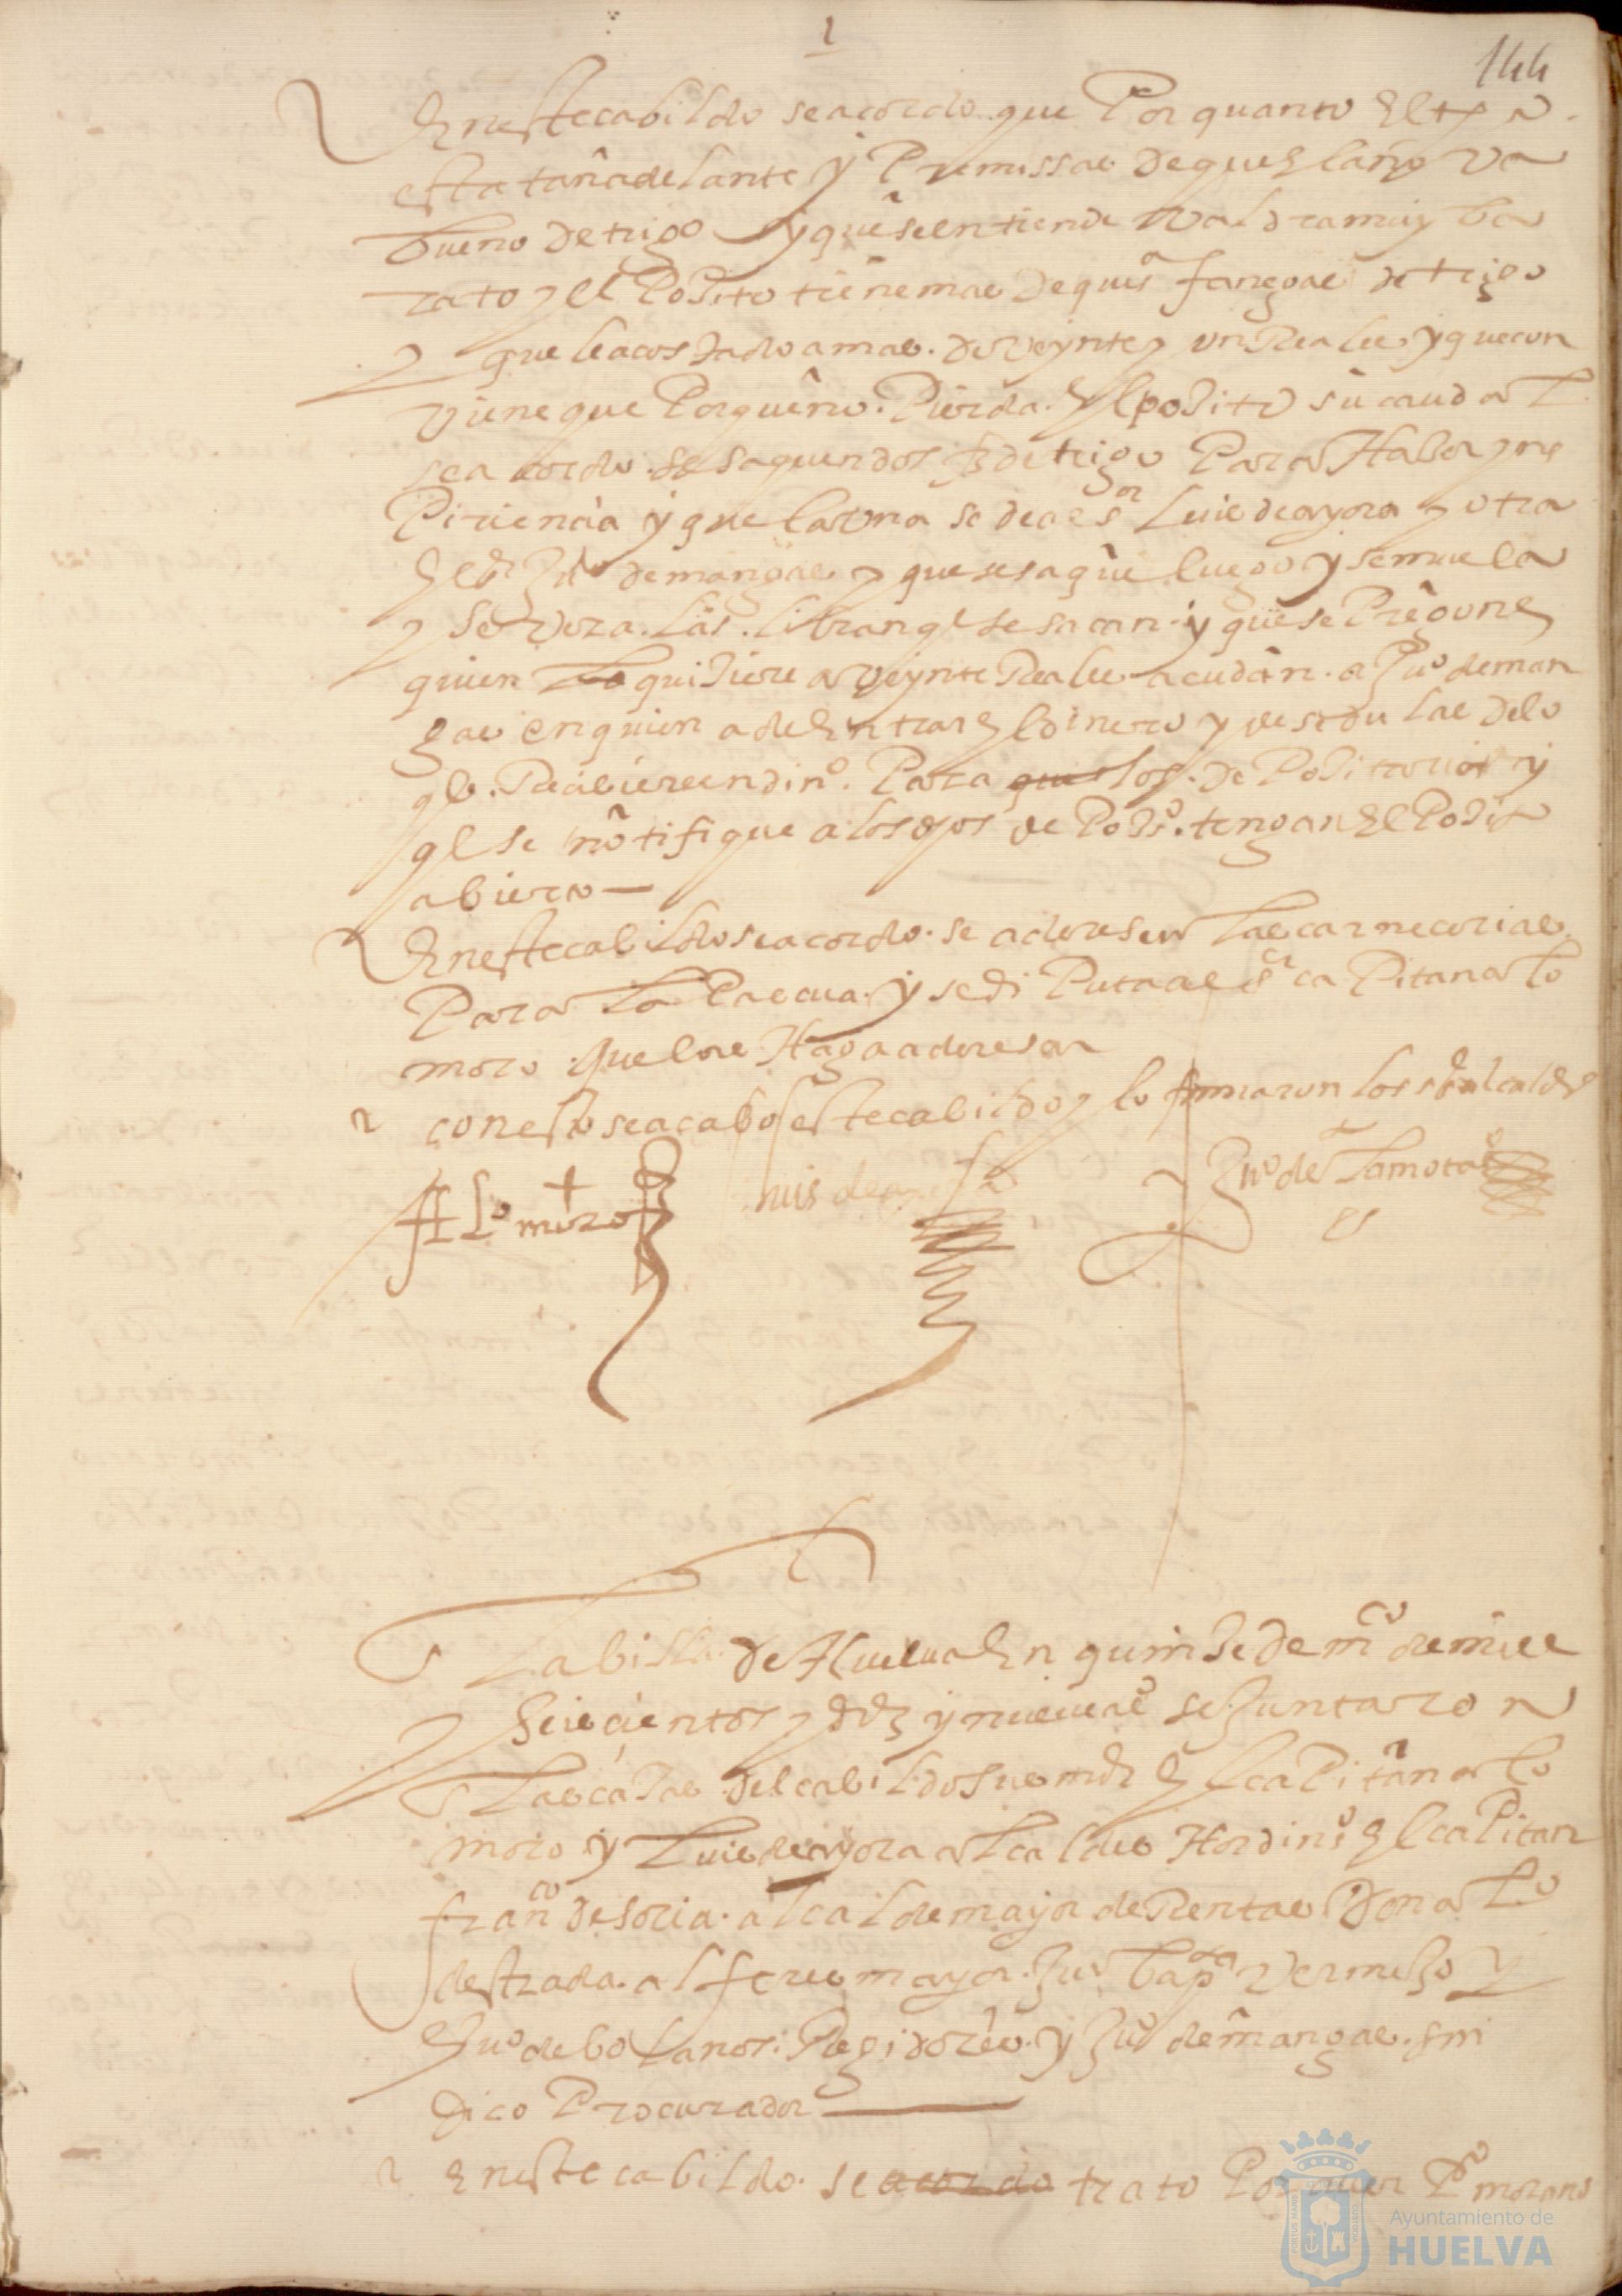 1
144
En este cabildo se acordo que Por quanto El tpo
esta tan adelante y Premissas de que El año va
bueno de trigo y que se entiende valdra muy ba
rato y el Posito tiene mas de quis fanegas de trigo
que le a costado a mas de veynte y un Reales y que con
viene que Porque no Pierda El posito su caudal
se a cordo se saquen dos de trigo Para
y que la una se de al sr Luis de ayora y otra
El sr Juo de mangas y que se saque luego y se muela
y se las se sacan y que se Pregone
quien lo quisiere a veynte Reales acudan a Juo de man
gas en quien a de Entrar El dinero y de sedulas de lo
qe Reciviere en dino Para que los de Positarios y
qe se notifique a los dhos de Poso tengan El Posito
abierto
En este cabildo se acordo se aderesen las carnecerias
Para la Pascua y se di Puta al sr ca Pitan alo
moro que las Haga aderesar
con esto se acabo este cabildo y lo firmaron los sres alcaldes
Alo moro
luis de ayora
Juo de la mota
es
La billa de Huelva En quinse de mco de mill
Seiscientos y diez y nueve as se Juntaron
Las casas del cabildo su md El ca Pitan alo
moro y Luis de ayora alcaldes Hordinos El ca Pitan
franco de soria alcalde mayor de Rentas Don alo
destrada alferes mayor Juo bapta vermejo y
Juo de bolanos Regidores y Juo de mangas sin
dico Procurador
En este cabildo se acordo trato Por Po morano
Ayuntamiento de
HUELVA